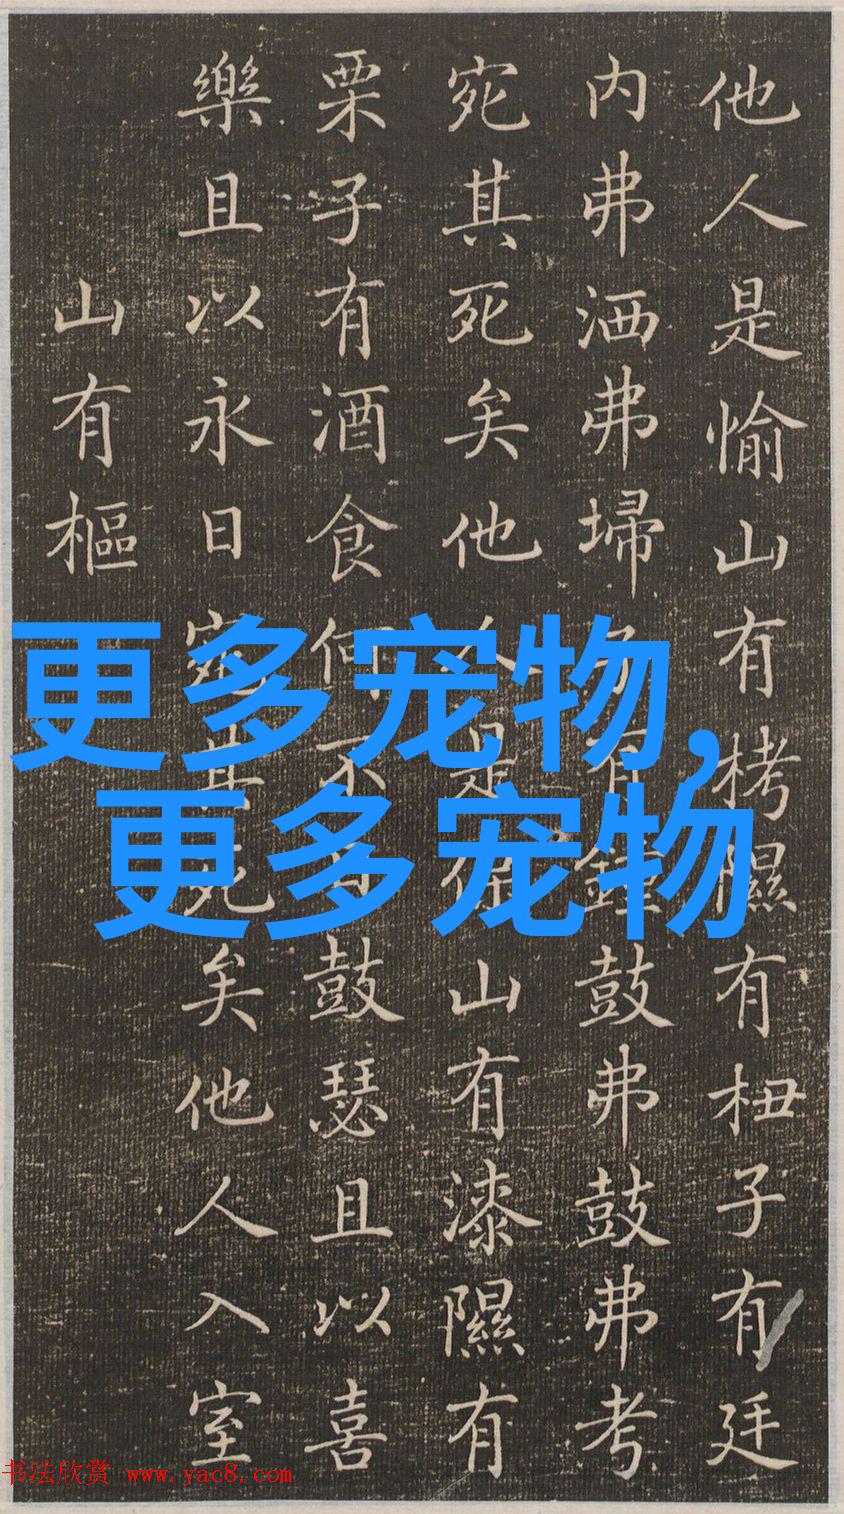 他人是愉山有栲隰有杻子有廷
内弗洒弗埽子有鍾鼓弗鼓弗考
宛其死矣他人是保山有漆隰有
栗子有酒食何不鼓瑟且以喜
樂且以永日宛其死矣他人入室
山有樞
更多宠物,
更多宠物
书法欣赏 www.yac8.com